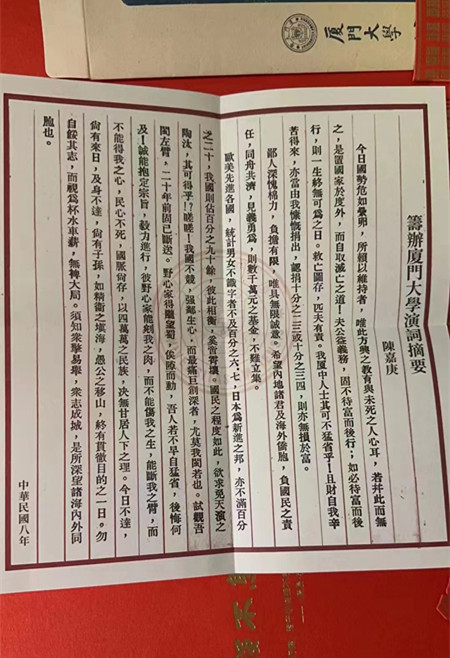 厦門大學
籌辦厦門大學演詞摘要
陳嘉庚
今日國勢危如壘卵，所賴以維持者，唯此方興之教育與未死之人心耳，若并此而無
之，是置國家於度外，而自取滅亡之道！夫公益義務，固不待富而後行；如必待富而後
行，則一生終無可為之日。救亡圖存，匹夫有責。我厦中人士其可不猛省乎！且財自我辛
苦得來，亦當由我慷慨捐出，認捐十分之二三或十分之三四，則亦無損於富。
鄙人深愧棉力，負擔有限，唯具無限誠意。希望內地諸君及海外僑胞，負國民之責
任，同舟共濟，見義勇為，則數千萬元之基金，不難立集。
歐美先進各國，統計男女不識字者不及百分之六、七，日本為新進之邦，亦不滿百分
之二十，我國則佔百分之九十餘，彼此相衡，奚啻霄壤。國民之程度如此，欲求免天演之
陶汰，其可得乎!？嗟嗟！我國不競，强鄰生心，而最痛巨創深者，尤莫我閩若也。試觀吾
閩左臂，二十年前固已斷送。野心家得隴望蜀，俟隙而動，吾人若不早自猛省，後悔何
及！誠能抱定宗旨，毅力進行，彼野心家能剜我之肉，而不能傷我之生，能斷我之臂，而
不能得我之心，民心不死，國脈尚存，以四萬萬之民族，決無甘居人下之理。今日不達，
尚有來日，及身不達，尚有子孫，如精衛之塡海，愚公之移山，終有貫徹目的之一日。勿
自餒其志，而視為杯水車薪，無裨大局。須知衆擎易舉，衆志成城，是所深望諸海內外同
胞也。
中華民國八年